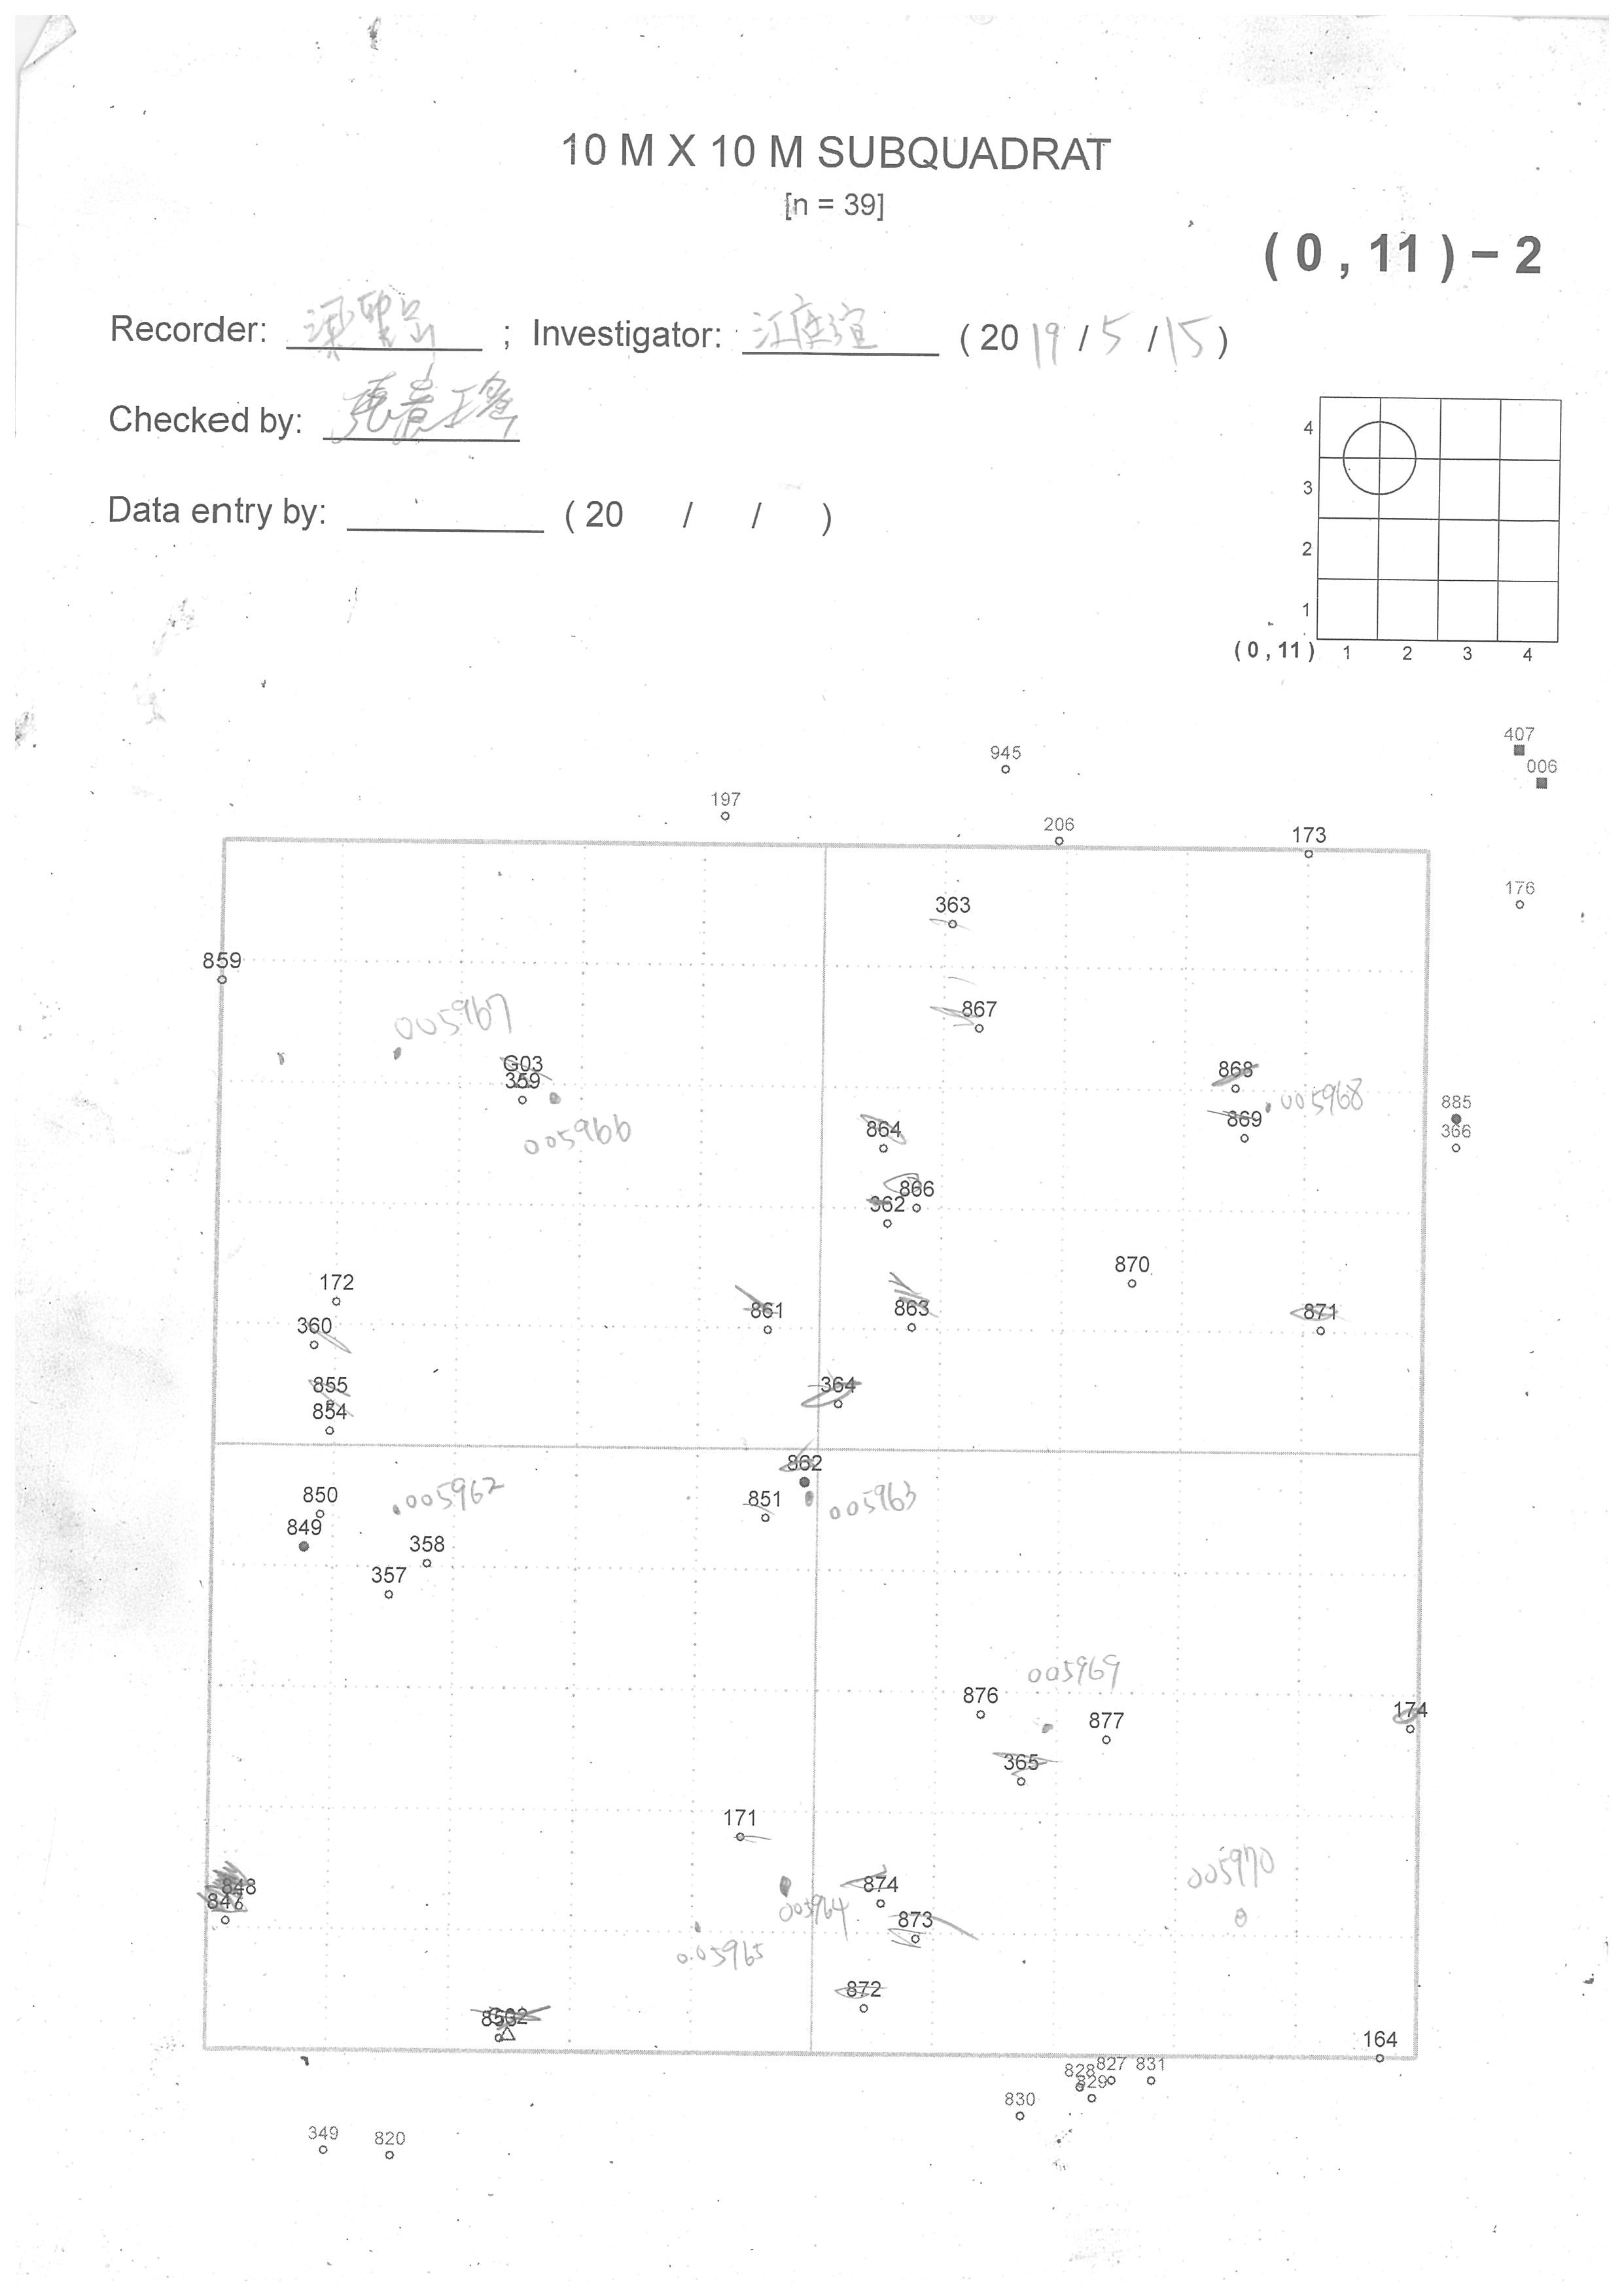 10 M X 10 M SUBQUADRAT
[n = 39]
( 0 , 11 ) - 2
Recorder: ; Investigator: (2019/5/15)
Checked by:
Data entry by: (20 / / )
4
3
2
1
(0,11) 1 2 3 4
407
945
006
197
206
173
176
363
859
867
005967
G03
359
868
005968
869
885
366
864
005966
866
362
870
172
861
863
871
360
364
855
854
862
850
005962
851
005963
849
358
357
005969
876
174
877
365
171
005970
848
847
874
005964
873
005965
872
164
828
827
831
829
830
349
820